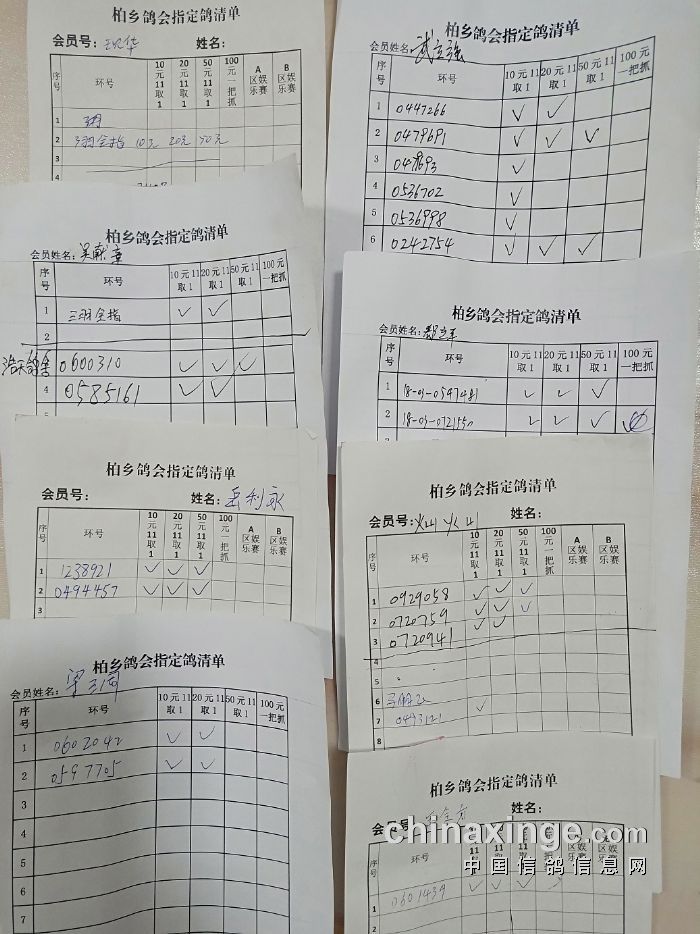 柏乡鸽会指定鸽清单
会员号: 姓名:
序号 环号 10元11取1 20元11取1 50元11取1 100元一把抓 A区娱乐赛 B区娱乐赛
1 3羽
2 3羽全指 10元 20元 50元
3
4
柏乡鸽会指定鸽清单
会员姓名: 武立强
序号 环号 10元11取1 20元11取1 50元11取1 100元一把抓
1 0447266 ✓ ✓
2 0479691 ✓ ✓ ✓
3 ✓
4 0536702 ✓
5 0536998 ✓
6 0242754 ✓ ✓ ✓
柏乡鸽会指定鸽清单
会员姓名:
序号 环号 10元11取1 20元11取1 50元11取1 100元一把抓
1 三羽全指 ✓ ✓
2
浩天鸽舍 0600310 ✓ ✓ ✓
4 0585161 ✓ ✓
柏乡鸽会指定鸽清单
会员姓名:
序号 环号 10元11取1 20元11取1 50元11取1 100元一把抓
1 18-03-0597481 ✓ ✓ ✓
2 18-03-0721550 ✓ ✓ ✓
柏乡鸽会指定鸽清单
会员号: 姓名: 岳利永
序号 环号 10元11取1 20元11取1 50元11取1 100元一把抓 A区娱乐赛 B区娱乐赛
1 1238921 ✓ ✓ ✓
2 0494457 ✓ ✓ ✓
3
柏乡鸽会指定鸽清单
会员号: 姓名:
序号 环号 10元11取1 20元11取1 50元11取1 100元一把抓 A区娱乐赛 B区娱乐赛
1 0929058 ✓ ✓ ✓
2 0720759 ✓ ✓ ✓
3 0720941 ✓ ✓
4
5
6
7 0493121 ✓
8
柏乡鸽会指定鸽清单
会员姓名:
序号 环号 10元11取1 20元11取1 50元11取1 100元一把抓
1 0602042 ✓ ✓
2 0597705 ✓ ✓
3
4
5
6
7
柏乡鸽会指定鸽清单
会员号: 姓名:
序号 环号
1 0601439 ✓ ✓ ✓
2
chinaxinge.com
中国信鸽信息网